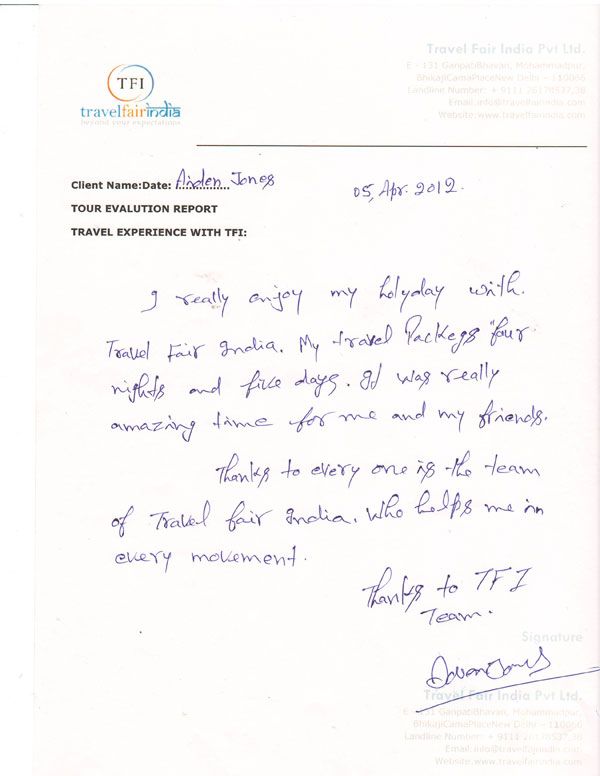 Travel Fair India Pvt Ltd.
E - 131 GanpatiBhavan, Mohammadpur,
BhikajiCamaPlaceNew Delhi - 110066
Landline Number: + 9111 26170537,38
Email:info@travelfairindia.com
Website:www.travelfairindia.com
TFI
travelfairindia
beyond your expectations
Client Name:Date: Aiden Jones 05, Apr. 2012.
TOUR EVALUTION REPORT
TRAVEL EXPERIENCE WITH TFI:
I really enjoy my holyday with.
Travel Fair India. My travel Packegs "four
nights and five days. It was really
amazing time for me and my friends.
Thanks to every one is the team
of Travel fair India. Who helps me in
every movement.
Thanks to TFI
Team.
Signature
Travel Fair India Pvt Ltd.
E - 131 GanpatiBhavan, Mohammadpur,
BhikajiCamaPlaceNew Delhi - 110066
Landline Number: + 9111 26170537,38
Email:info@travelfairindia.com
Website:www.travelfairindia.com